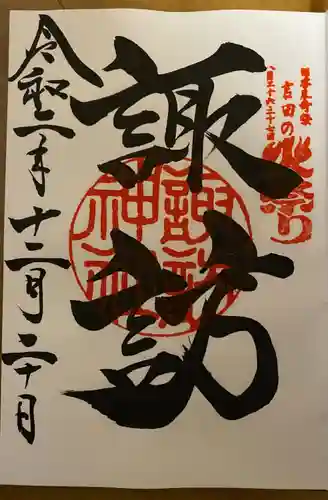 日本三奇祭
吉田の火祭り
八月二十六二十七日
諏訪
諏訪神社
令和二年十二月二十日